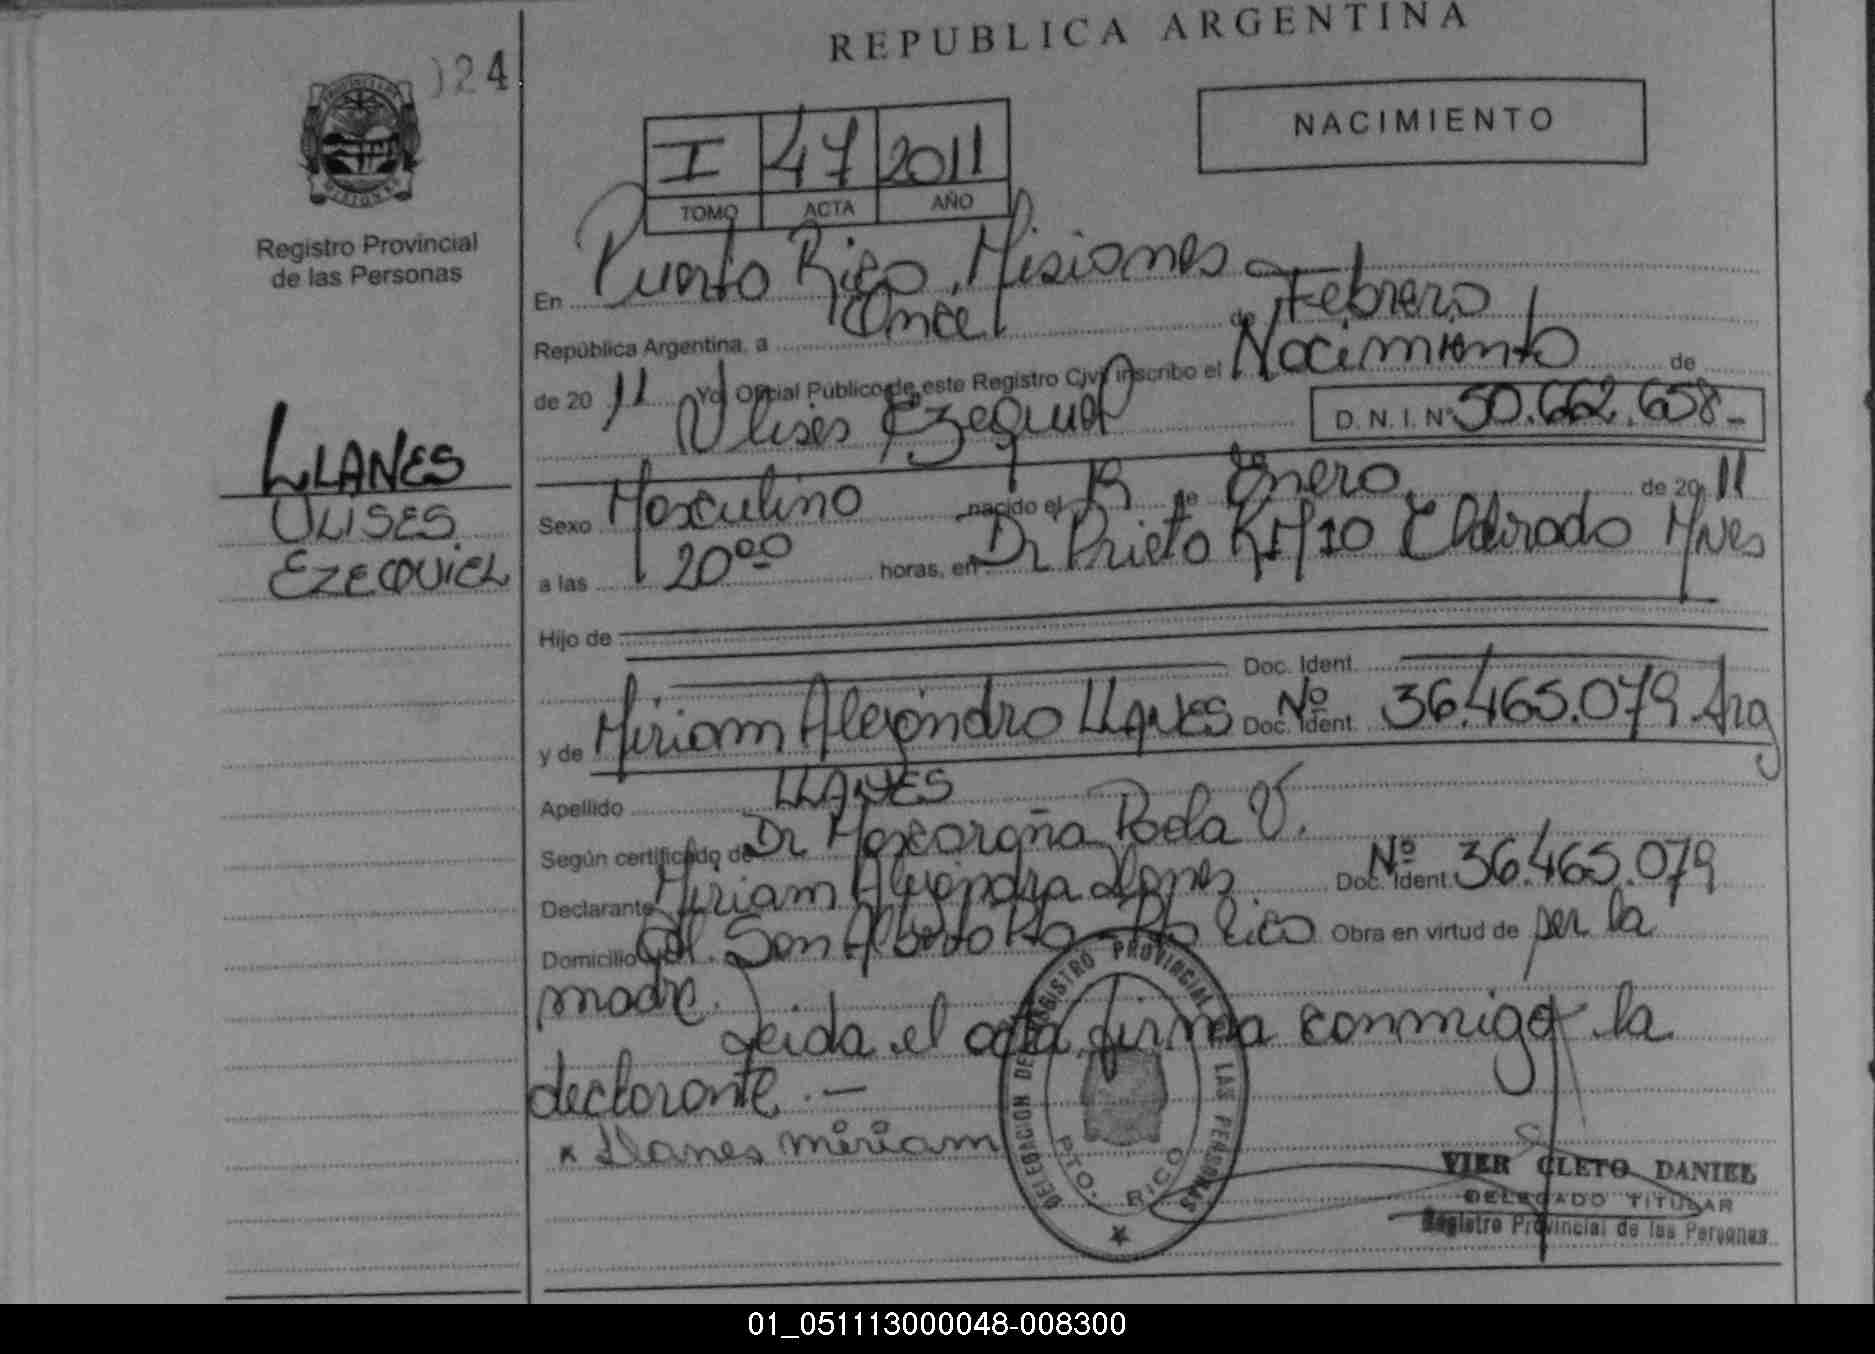 REPUBLICA ARGENTINA
024
NACIMIENTO
I 47 2011
TOMO ACTA AÑO
Registro Provincial
de las Personas
LLANES
ULISES
EZEQUIEL
En Puerto Rico, Misiones
República Argentina, a Once de Febrero
de 20 11 Yo, Oficial Público de este Registro Civil inscribo el Nacimiento de
Ulises Ezequiel D.N.I. Nº 50.662.658-
Sexo Masculino nacido el de Enero de 20 11
a las 20⁰⁰ horas, en Dr Prieto KM 10 Eldorado Mnes
Hijo de
Doc. Ident.
y de Miriam Alejandra LLANES Doc. Ident. Nº 36.465.079 Arg
Apellido LLANES
Según certificado de Dr Mascaraña Paola V.
Declarante Miriam Alejandra Llanes Doc. Ident. Nº 36.465.079
Domicilio Col. San Alberto Pto Rico Obra en virtud de ser la
madre.
Leida el acta firma conmigo la
declarante.-
x Llanes miriam
DELEGACION DEL REGISTRO PROVINCIAL DE LAS PERSONAS
PTO. RICO
VIER CLETO DANIEL
DELEGADO TITULAR
Registro Provincial de las Personas
01_051113000048-008300